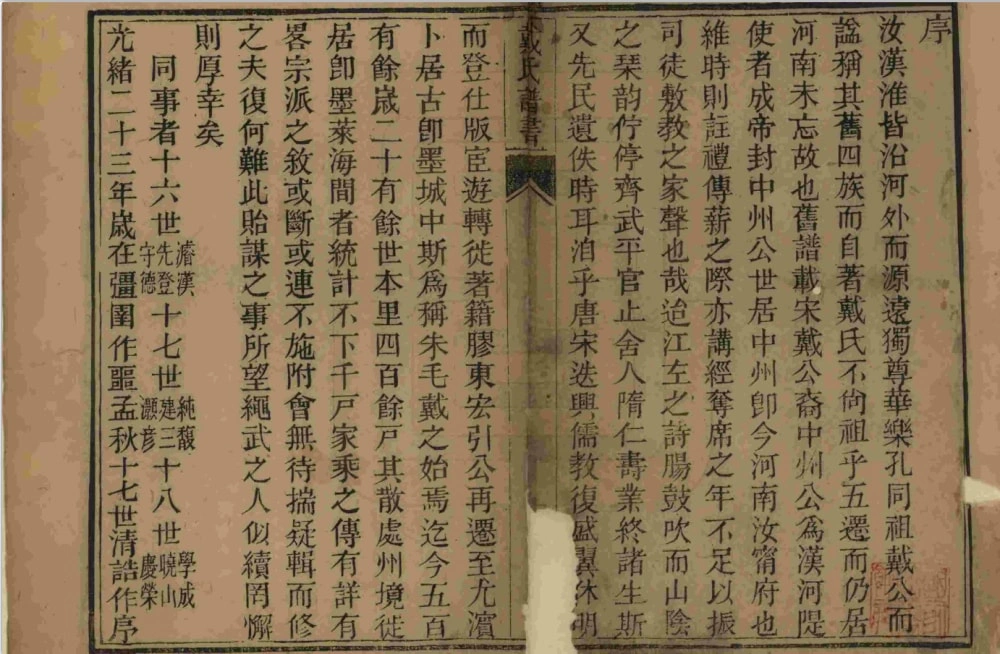 序
汝漢淮皆沿河外而源遠獨尊華樂孔同祖戴公而
謚稱其舊四族而自著戴氏不尙祖乎五遷而仍居
河南未忘故也舊譜載宋戴公裔中州公爲漢河隄
使者成帝封中州公世居中州卽今河南汝甯府也
維時則註禮傳薪之際亦講經奪席之年不足以振
司徒敷教之家聲也哉迨江左之詩腸鼓吹而山陰
之琴韵佇停齊武平官止舍人隋仁壽業終諸生斯
又先民遺佚時耳洎乎唐宋迭興儒教復盛翼休明
戴氏譜書
而登仕版宦遊轉徙著籍膠東宏引公再遷至尤濱
卜居古卽墨城中斯爲稱朱毛戴之始焉迄今五百
有餘歲二十有餘世本里四百餘戸其散處州境徙
居卽墨萊海間者統計不下千戸家乘之傳有詳有
畧宗派之敘或斷或連不施附會無待揣疑輯而修
之夫復何難此貽謀之事所望繩武之人似續罔懈
則厚幸矣
同事者十六世濬漢先登守德十七世純馥建三灝彥十八世學成曉山慶榮
光緒二十三年歲在彊圉作噩孟秋十七世清誥作序